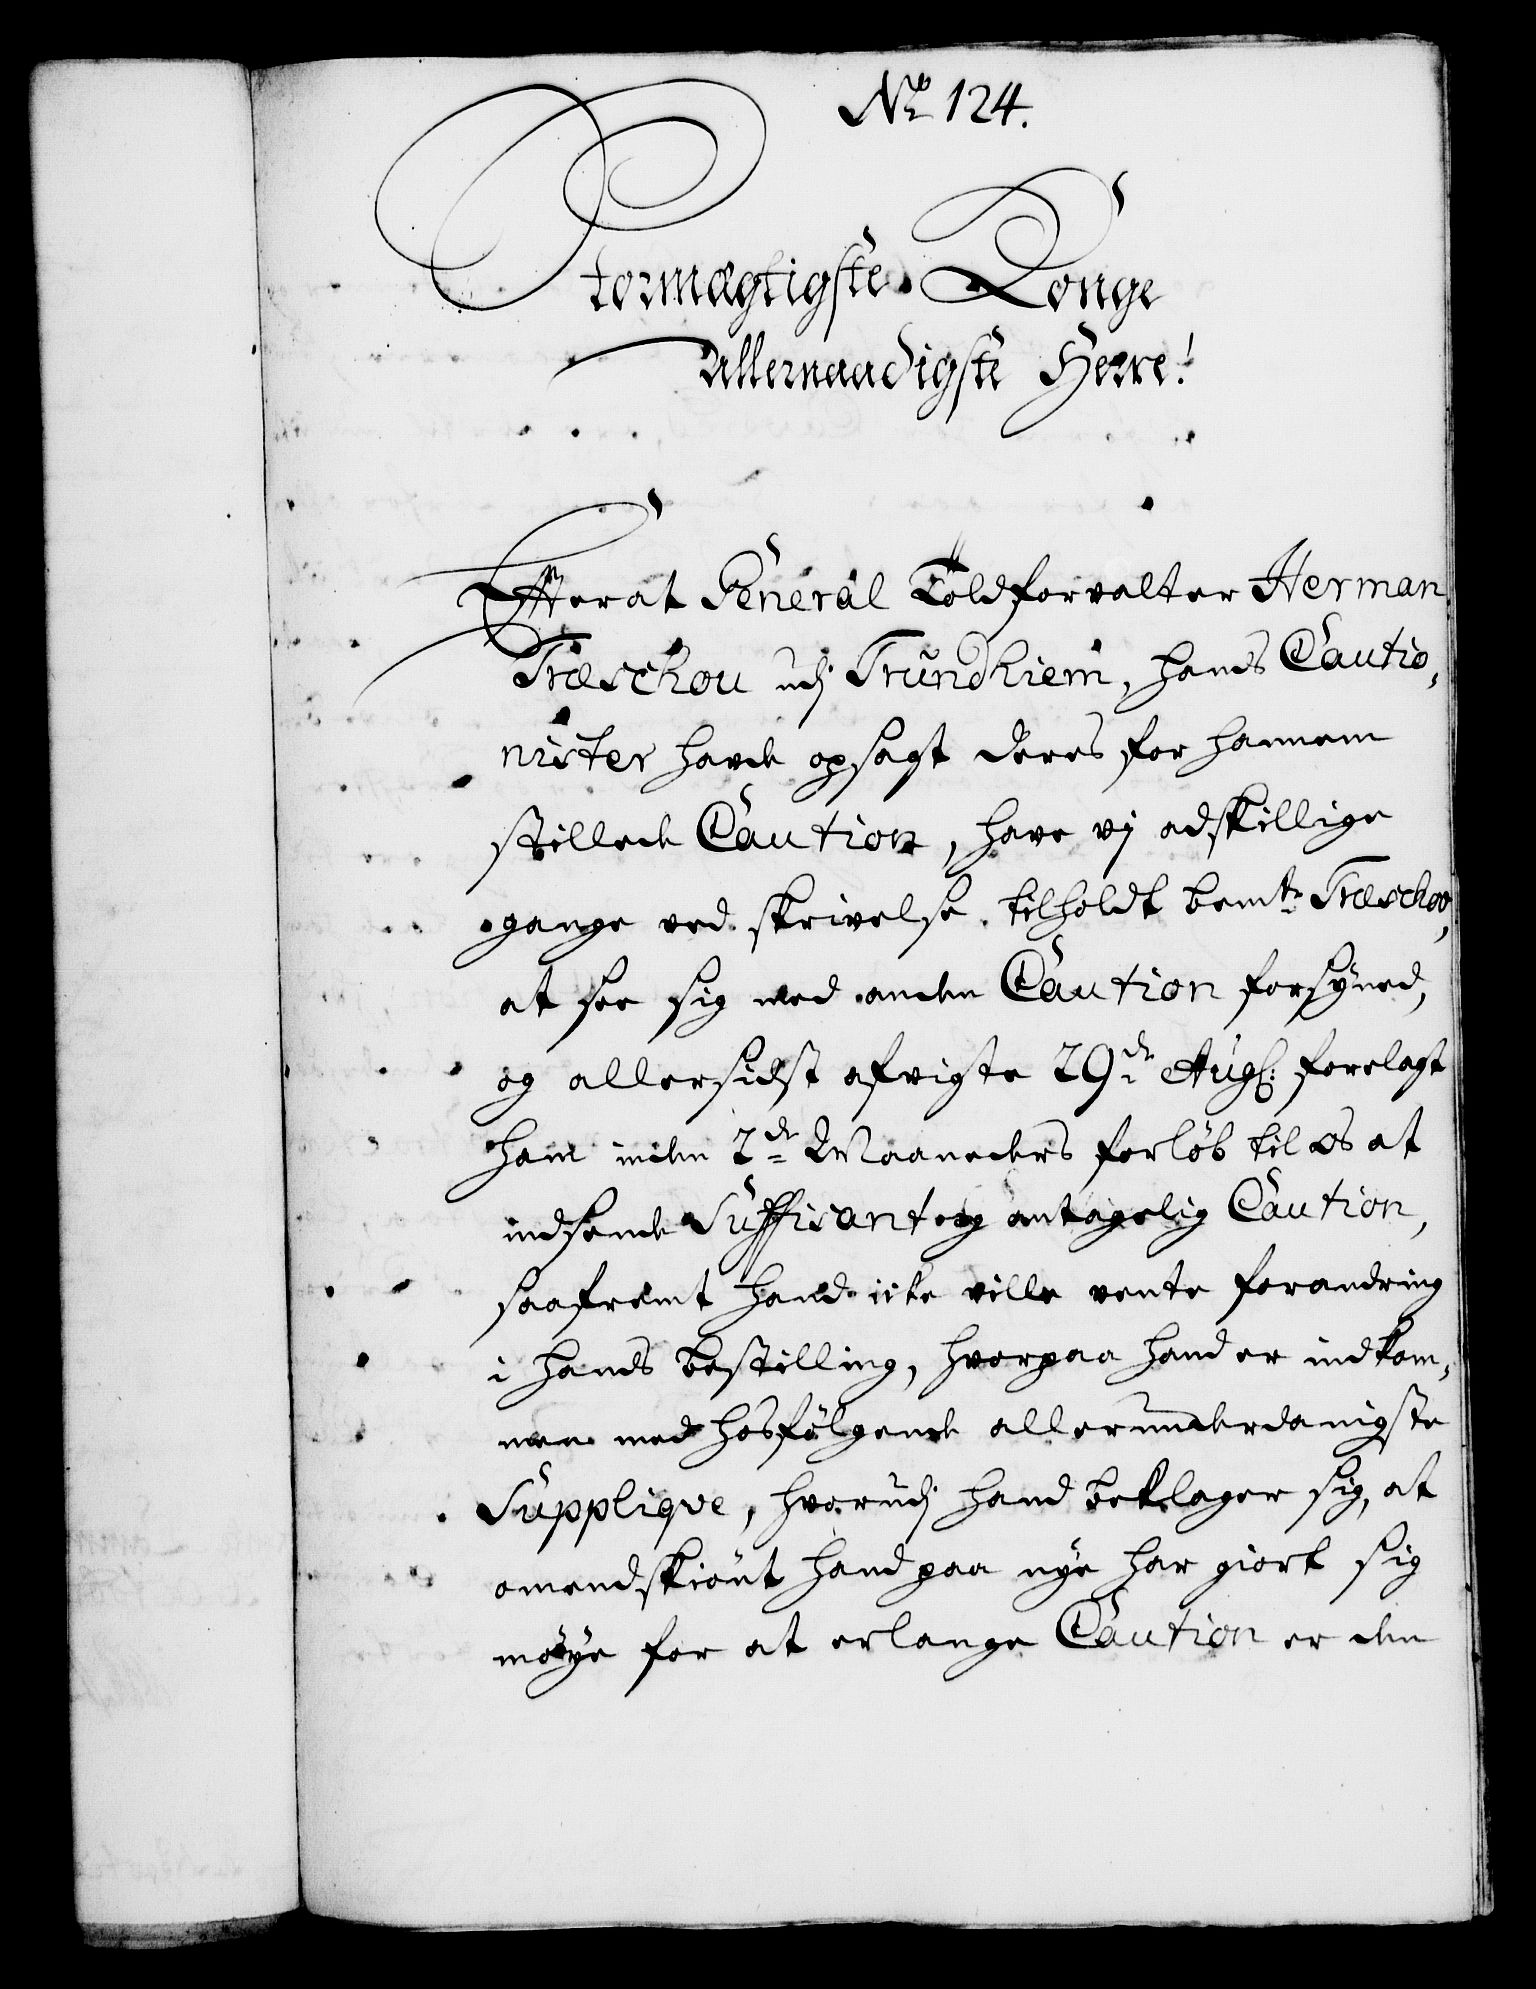 No 124.
Stormægtigste Konge
Allernaadigste Herre!
Efterat General Toldforvalter Herman
Træschou udj Trundhiem, hands Cautio,
nister havde opsagt deres for hannem
stillede Caution, have vj adskillige
gange ved skrivelse tilholdt bemte Træschov,
at see sig med anden Caution forsÿned,
og allersidst afvigte 29de Aug: forelagt
ham inden 2de Maaneders forløb til os at
indsende Suffisant og antagelig Caution,
saafremt hand icke ville vente forandring
i hands bestilling, hvorpaa hand er indkom,
men med hosfølgende allerunderdanigste
Suppliqve, hvorudj hand beklager sig, at
omendskiønt hand paa nye har giort sig
møye for at erlange Caution er den